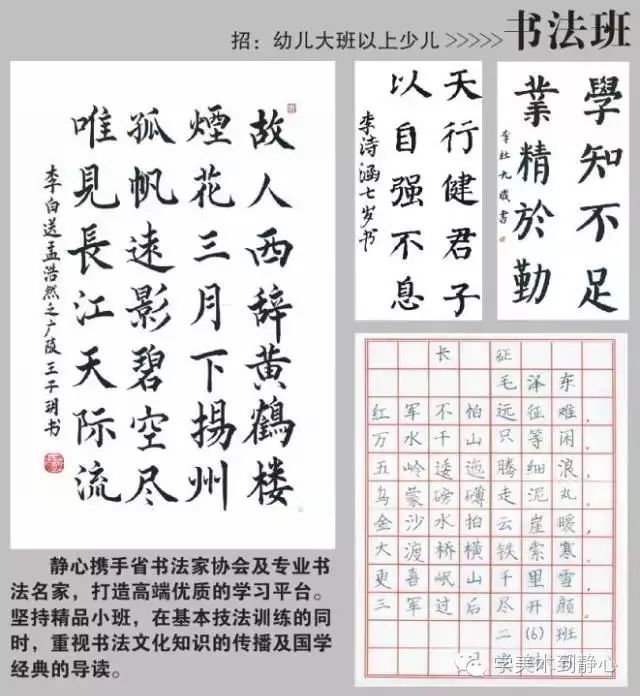 招：幼儿大班以上少儿 >>>>> 书法班
故人西辞黄鶴楼
煙花三月下揚州
孤帆遠影碧空尽
唯見長江天际流
李白送孟浩然之广陵 王子玥书
天行健君子
以自强不息
李诗涵七岁书
學知不足
業精於勤
李杜九歲書
长 征
毛泽东
红军不怕远征难，
万水千山只等闲。
五岭逶迤腾细浪，
乌蒙磅礴走泥丸。
金沙水拍云崖暖，
大渡桥横铁索寒。
更喜岷山千里雪，
三军过后尽开颜。
二(6)班
静心携手省书法家协会及专业书
法名家，打造高端优质的学习平台。
坚持精品小班，在基本技法训练的同
时，重视书法文化知识的传播及国学
经典的导读。
学美术到静心